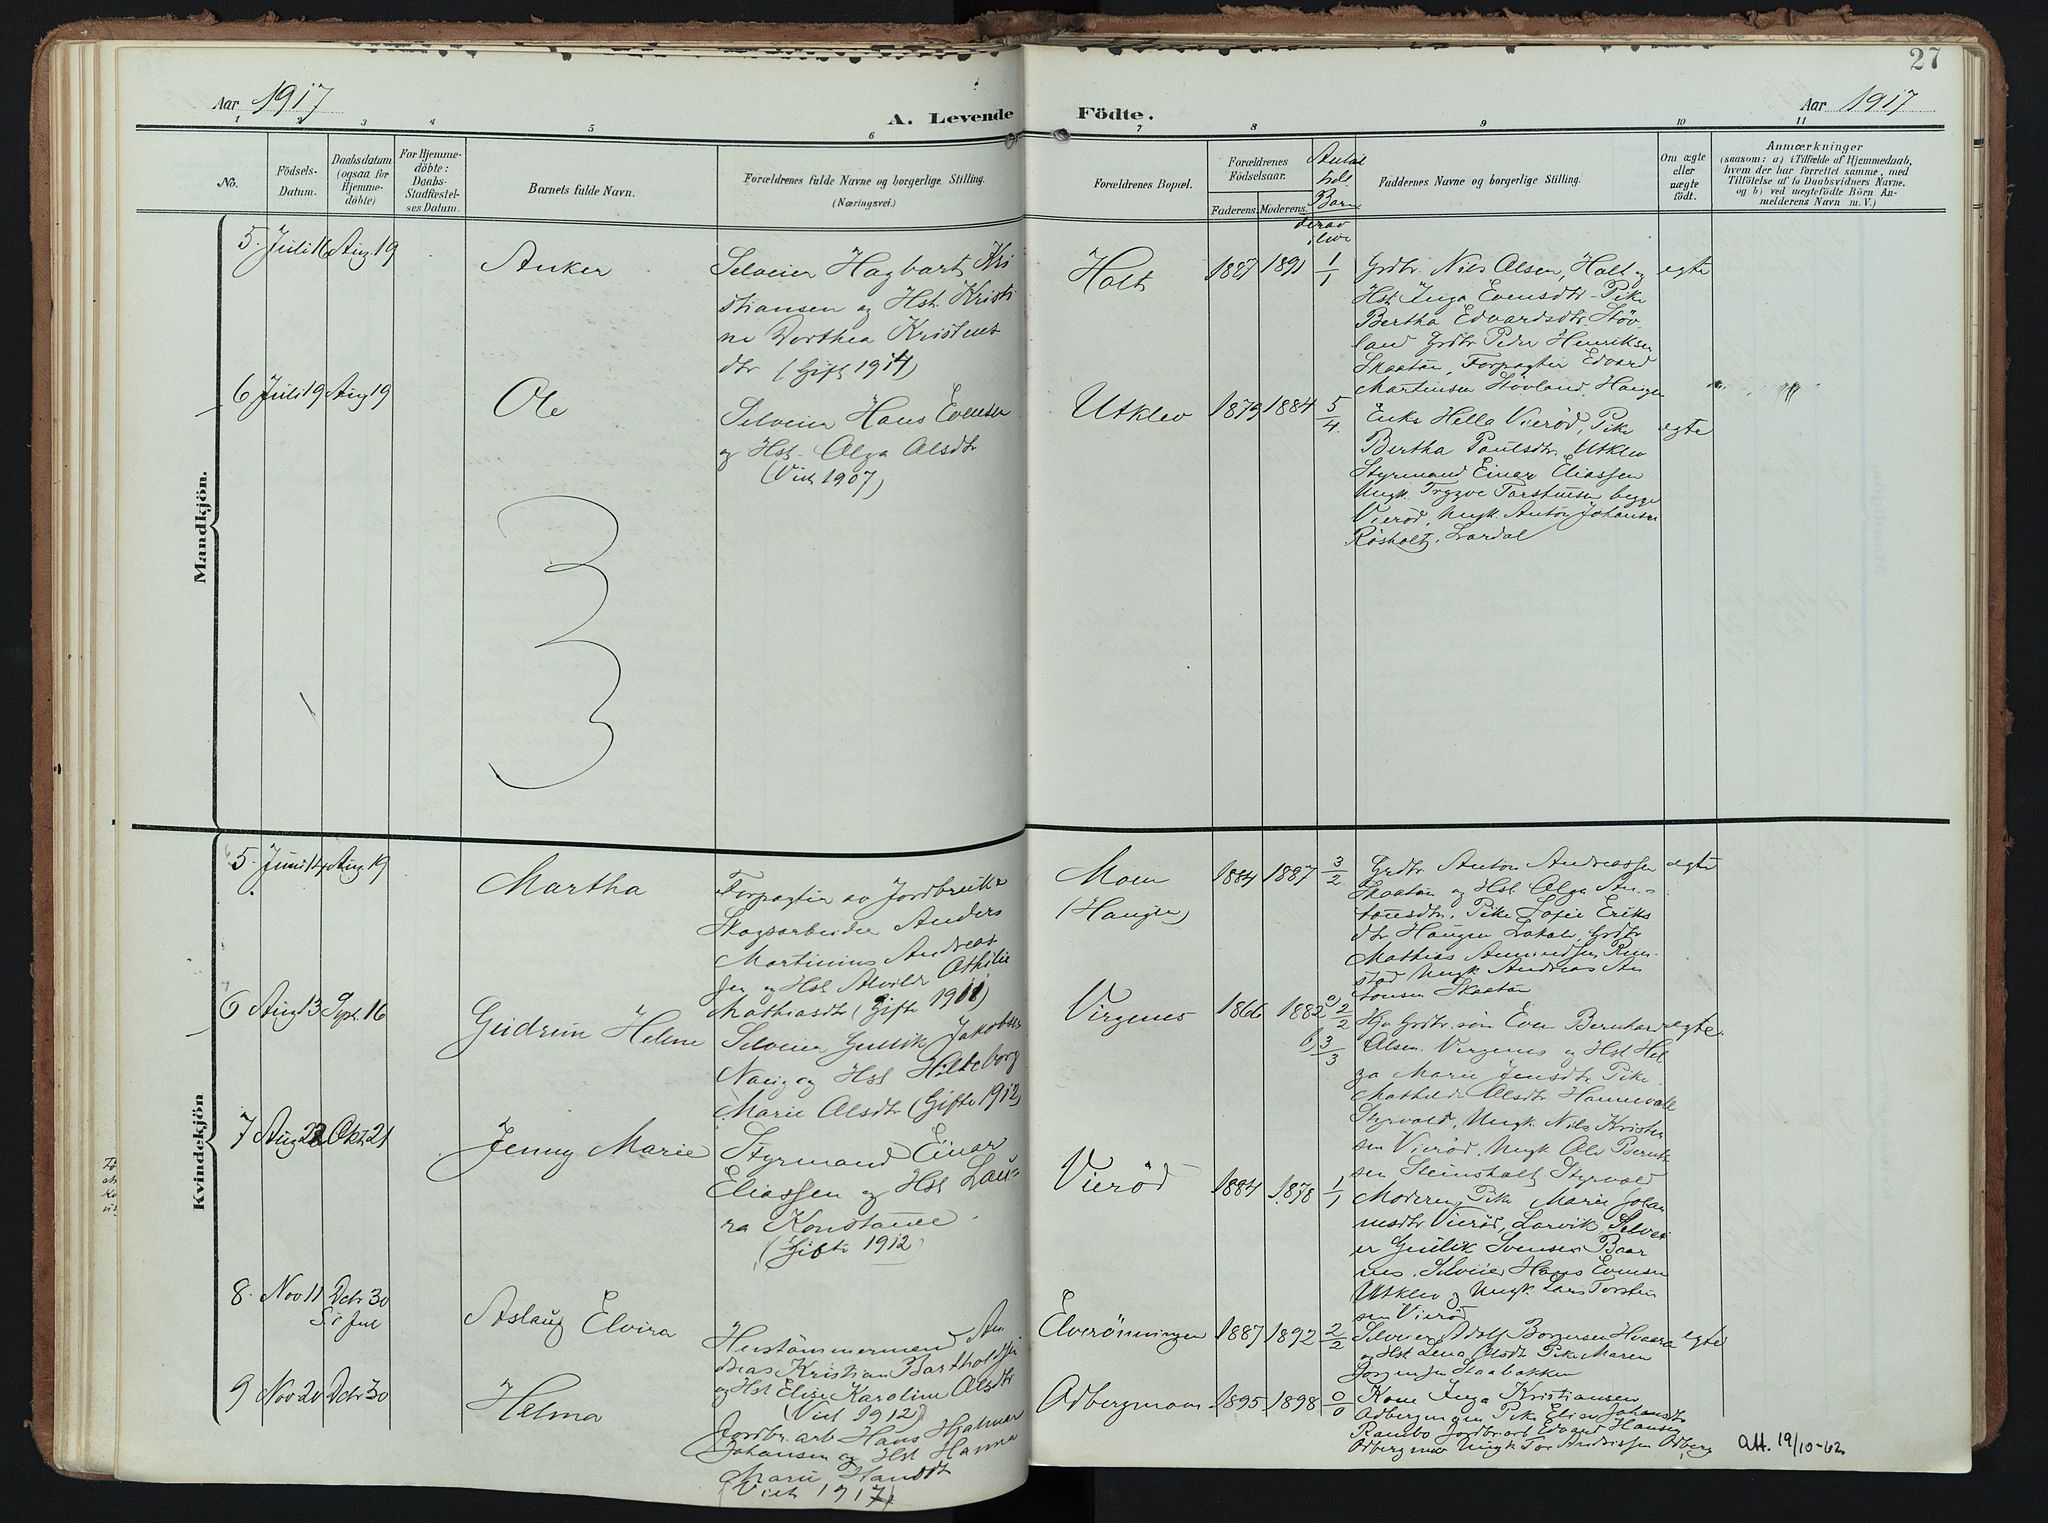 27
Aar 1917
A. Levende Födte.
Aar 1917
1 2 3 4 5 6 7 8 9 10 11
No.
Födsels-
Datum.
Daabsdatum
(ogsaa for
Hjemme-
döbte)
For Hjemme-
döbte:
Daabs-
Stadfæstel-
ses Datum.
Barnets fulde Navn.
Forældrenes fulde Navne og borgerlige Stilling.
(Næringsvei.)
Forældrenes Bopæl.
Forældrenes
Födselsaar.
Faderens. Moderens.
Antal
Barn
ilive
Faddernes Navne og borgerlige Stilling.
Om ægte
eller
uægte
födt.
Anmærkninger
(saasom: a) i Tilfælde af Hjemmedaab,
hvem der har forrettet samme, med
Tilföielse af to Daabsvidners Navne.
og b) ved uægtefödte Börn An-
melderens Navn m. V.)
Mandkjön.
5. Juli 16 Aug. 19
Anker
Selveier Hagbart Kri
stiansen og Hst. Kristi
ne Dorthea Kristens
dtr (Gift 1914)
Holt
1887 1891 1/1
Grdbr. Nils Olsen, Holt og
Hst Inga Evensdtr. Pike
Bertha Edvardsdtr. Höv
land Grdbr Peder Henriksen
Skaatön, Forpagter Edvard
Martinsen Hövland, Haugen
egte
6. Juli 19 Aug 19
Ole
Selveier Hans Evensen
og Hst. Olga Olsdtr
(Viet 1907)
Utklev
1879 1884 5/4
Enke Hella Vierød, Pike
Bertha Paulsdtr. Utklev
Styrmand Einar Eliassen
Ungk. Trygve Torstensen begge
Vierød, Ungk. Anton Johansen
Røsholt, Lardal
egte
3
3
Kvindekjön
5. Juni 14 Aug. 19
Martha
Forpagter av Jordbruk &
Skogsarbeider Anders
Martinius Andreas
sen og Hst Alvilde Othilie
Mathiasdtr (Gifte 1911)
Moen
(Haugen)
1884 1887 3/2
Grdbr. Anton Andreassen
Skaatön og Hst Olga An-
tonsdtr. Pike Sofie Eriks
dtr Haugen Grdbr
Mathias Amundsen
Ungk Andreas An
tonsen Skaatön
egte
6 Aug 13 Sept. 16
Gudrun Helene
Selveier Gullik Jakobsen
og Hst Hildeborg
Marie Olsdtr (Gifte 1912)
Virgenes
1866 1882 a) 2/2
b) 3/3
Grdbr. søn Even Bernhard
Olsen Virgenes og Hst Hel
ga Marie Jensdtr Pike
Mathilde Olsdtr Hannevold
Styrvold, Ungk. Nils Kristen
sen Vierød, Ungk Ole Bernt
sen Steinsholt Styrvold
egte
7 Aug 22 Okt. 21
Jenny Marie
Styrmand Einar
Eliassen og Hst Lau-
ra Konstance
(Gifte 1912)
Vierød
1884 1878 1/1
Moderen, Pike Marie Johan
nesdtr Vierød, Larvik Selvei
er Gullik Svensen Baar
nes, Selveier Hans Evensen
Utklev og Ungk Lars Torsten
sen Vierød
8. Nov 11 Dcbr 30
Aslaug Elvira
Hustømmermand An
dreas Kristian Bartholdsen
og Hst Elise Karoline Olsdtr
(Viet 1912)
Elverönningen
1887 1892 2/2
Selveier Adolf Borgersen Hvaara
og Hst Lena Olsdtr Pike Maren
Jörgensen Skaabakken
egte
9 Nov 20 Dcbr 30
Helma
Jordbr. arb Hans Hjalmar
Johansen og Hst Hanna
Marie Hansdtr
(Viet 1917)
Odbergmoen
1895 1898 0/0
Kone Inga Kristiansen
Odbergmoen Pike Elise Johansdtr
Rambo Jordbr. arb Edvard Hansen
Odbergmoen Ungk Tor Andreassen Odberg
att. 19/10-62